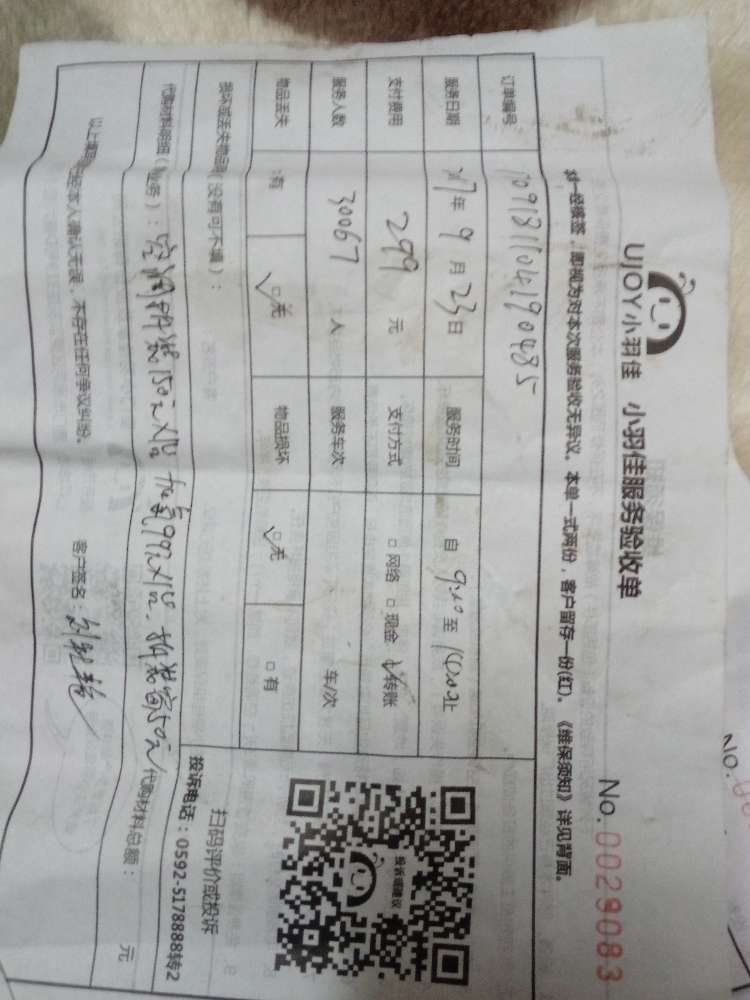 UJOY小羽佳 小羽佳服务验收单
No.0029083
一经签签，即视为对本次服务验收无异议。本单一式两份，客户留存一份(红)。《维保须知》详见背面。
订单编号
服务日期 17年9月23日 服务时间 自 9:10 至 止
支付费用 299 元 支付方式 □网络 □现金 □转账
服务人数 30067 人 服务车次 车/次
物品丢失 □有 □无 物品损坏 □无 □有
损坏或丢失物品(没有可不填)：
代购材料明细(服务)：空调拆装150元X1台 加氟99元X1台 50元 代购材料总额： 元
以上事项经本人确认无误，不存在任何争议纠纷。 客户签名：
投诉或建议
扫码评价或投诉
投诉电话：0592-5178888转2
NO.